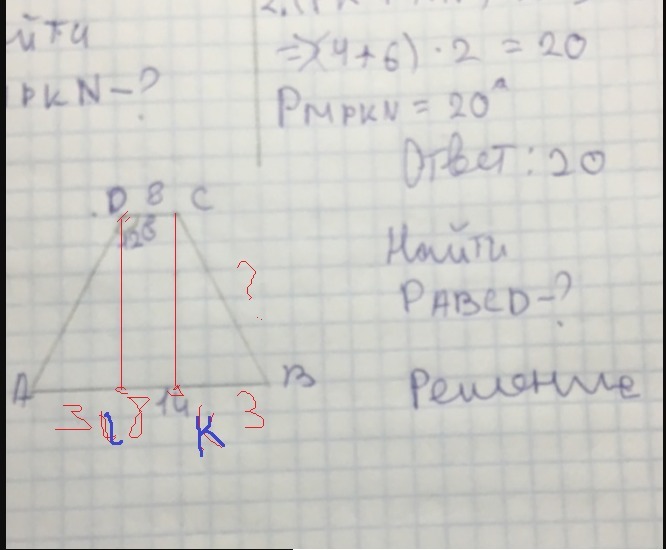 йти
PKN-?
=>(4+6)·2 = 20
PMPKN = 20
Ответ: 20
D 8 C
120
?
A
B
3
8
14
3
L
K
Найти
PABCD-?
Решение